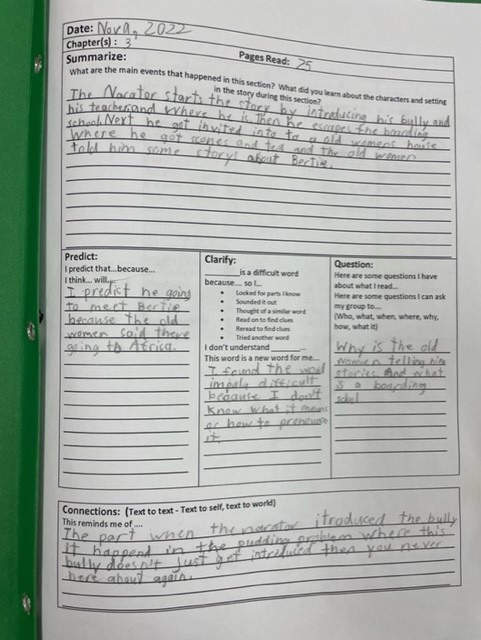 Date: Nov 9, 2022
Chapter(s) : 3
Pages Read: 25
Summarize:
What are the main events that happened in this section? What did you learn about the characters and setting
in the story during this section?
The Narator starts the story by introducing his bully and
his teacher and where he is then he escapes the boarding
school. Next he got invited into to a old womens house
Where he got scones and tea and the old women
told him some storys about Bertie.
Predict:
I predict that...because...
I think... will...
I predict he going
to meet Bertie
because the old
women said there
going to Africa.
Clarify:
______is a difficult word
because... so I...
• Looked for parts I know
• Sounded it out
• Thought of a similar word
• Read on to find clues
• Reread to find clues
• Tried another word
I don't understand ______
This word is a new word for me...
I found the word
difficult
because I don't
know what it means
or how to pronouse
it.
Question:
Here are some questions I have
about what I read...
Here are some questions I can ask
my group to...
(Who, what, when, where, why,
how, what if)
Why is the old
women telling him
stories. And what
is a boarding
schol
Connections: (Text to text - Text to self, text to world)
This reminds me of ....
The part when the narator itroduced the bully
It happend in the pudding problem where this
bully doesn't just get intriduced then you never
here about again.